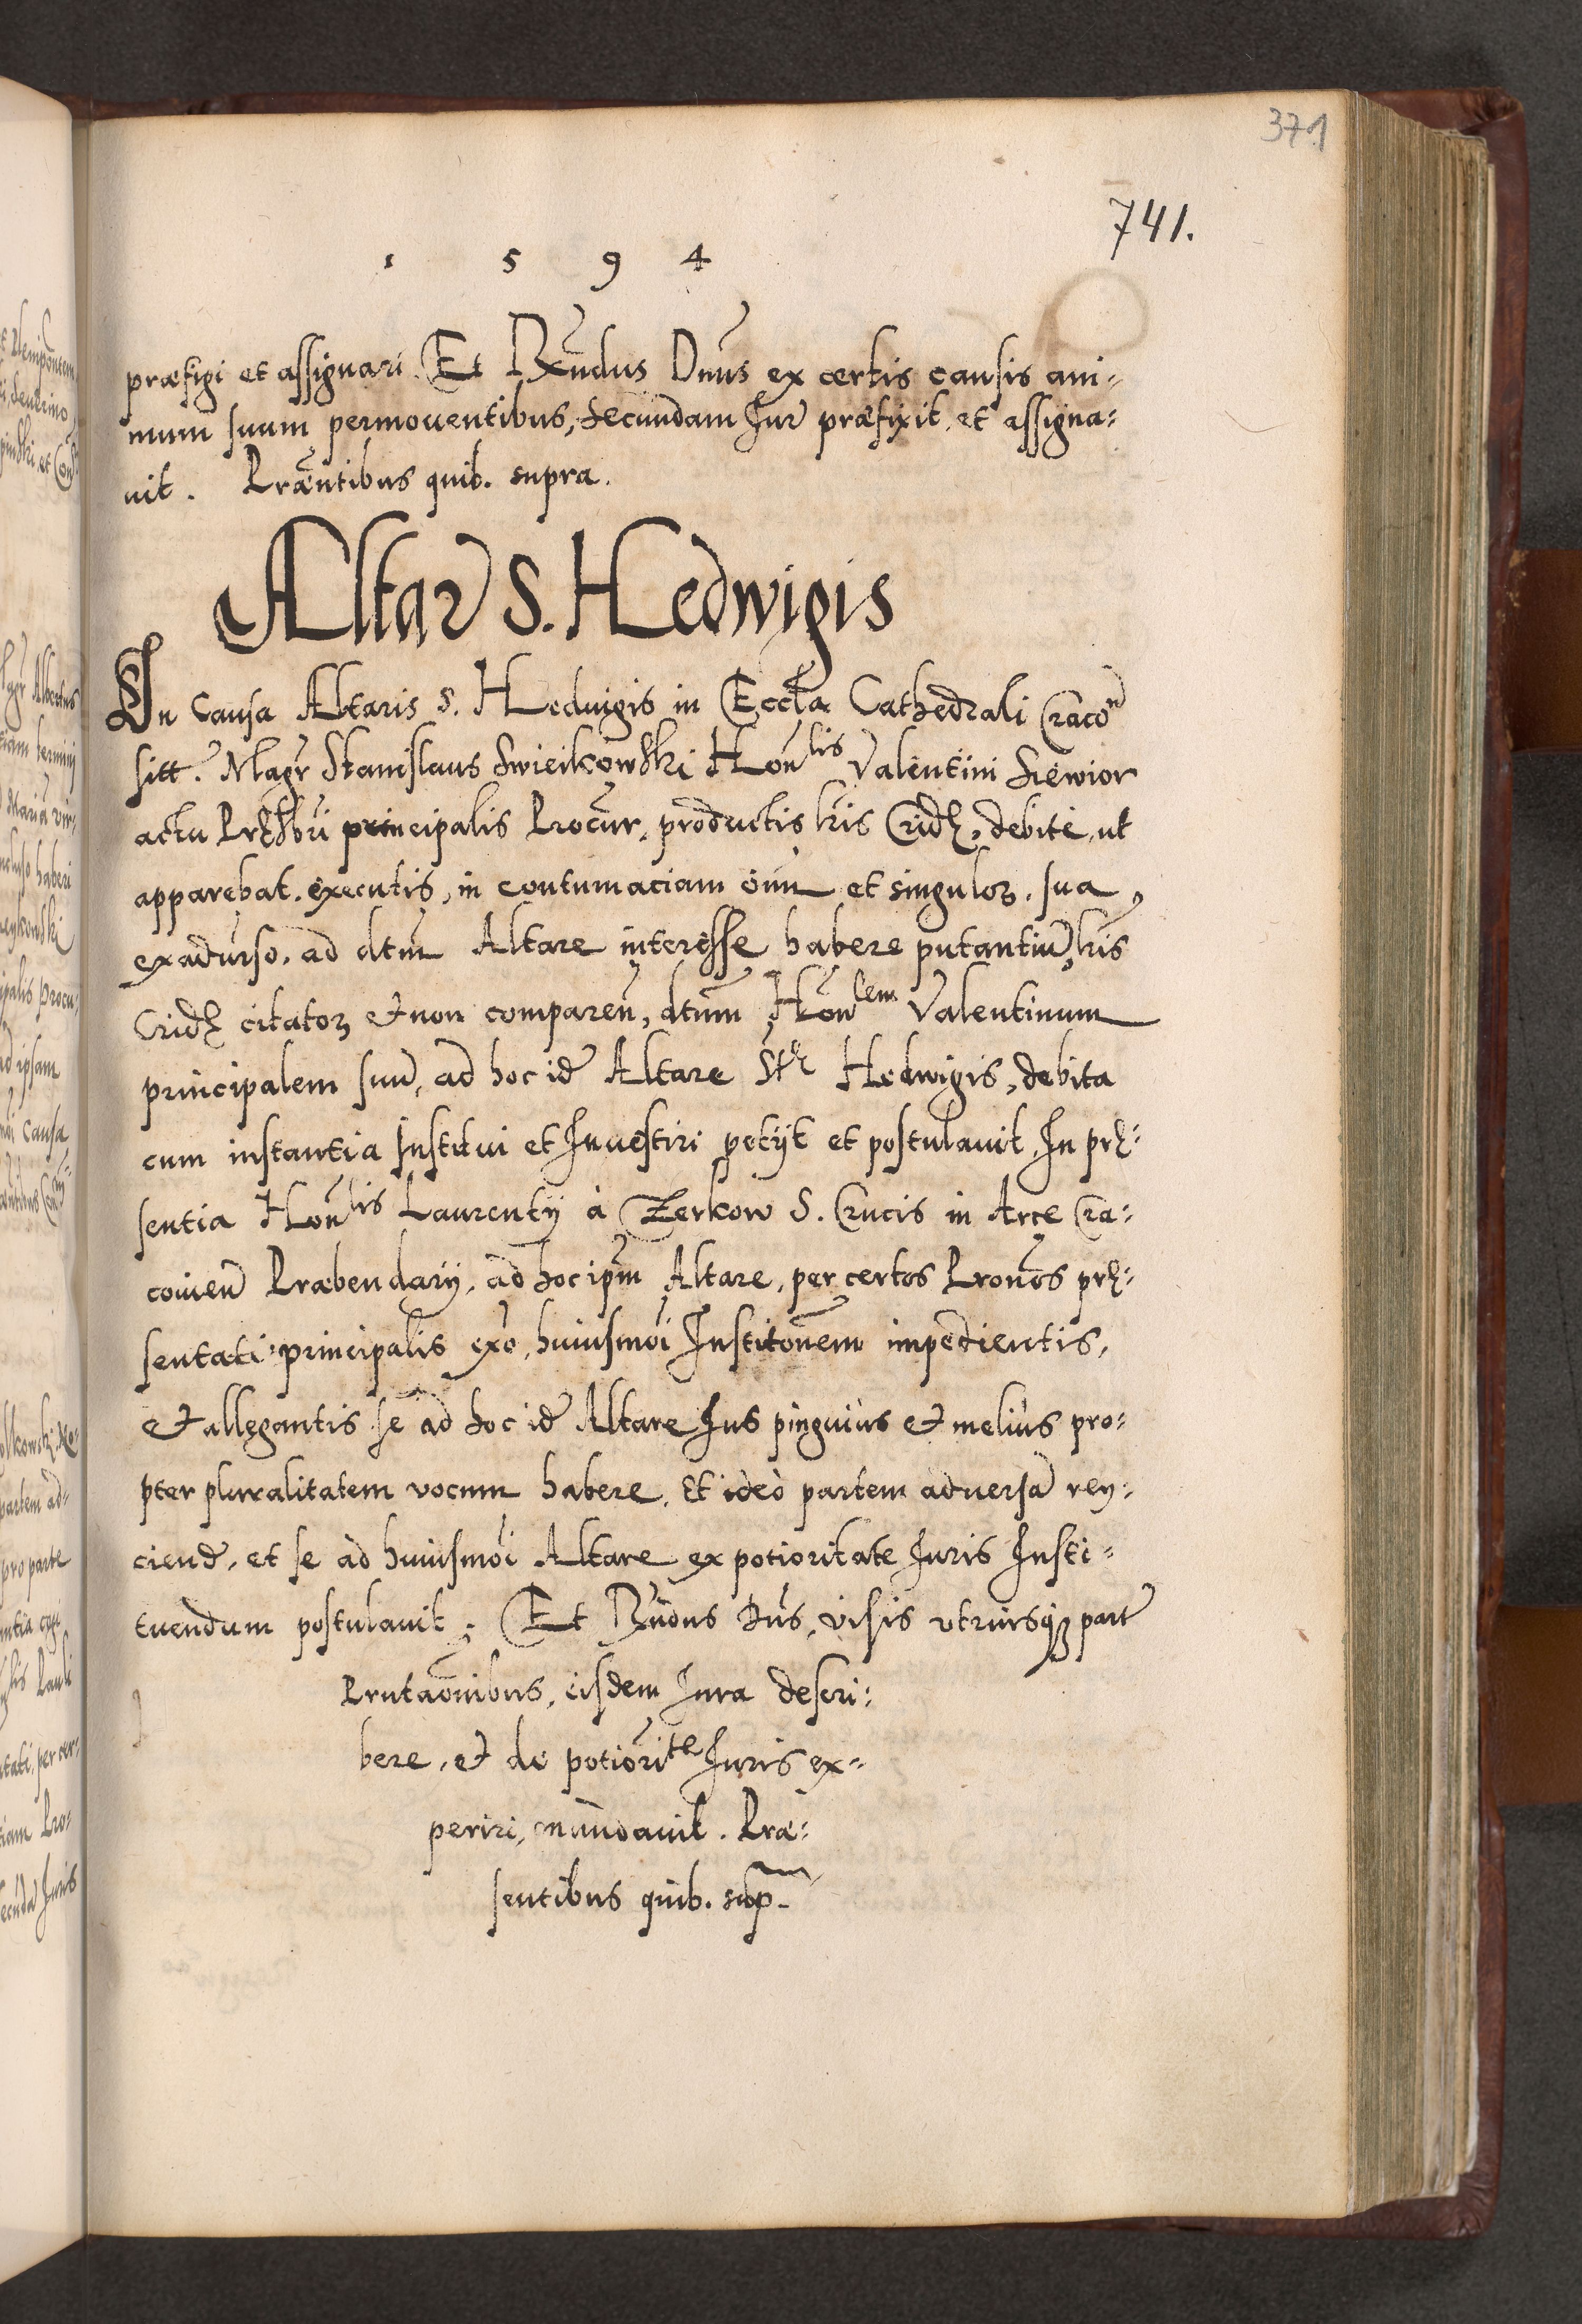 371
741.
1 5 9 4
præfigi et assignari. Et Rẽndus Dnũs ex certis causis ani=
mum suum permouentibus, secundam Jur̃ præfixit, et assigna=
uit. Præñtibus quib. supra.
Altar̃ S. Hedwigis
In Causa Altaris S. Heduigis in Eccľa Cathedrali Cracoⁿ
sitt. Magr̃ Stanislaus Swieikowski Honˡⁱˢ Valentini Siewior
actu Prẽsbri principalis Procur. productis lr̃is Cridę, debite, ut
apparebat. executis, in contumaciam oĩm et singuloꝝ. sua,
exaduerso, ad dtm̃ Altare interesse habere putantiũ, lr̃is
Cridę citatoꝝ et non comparen̄, dtum̃ Honˡᵉᵐ Valentinum
principalem suũ, ad hoc id̃ Altare Stę Hedwigis, debita
cum instantia Institui et Inuestiri petijt et postulauit. In prę=
sentia Honˡⁱˢ Laurentij à Zerkow S. Crucis in Arce Cra=
couien̄ Præbendarij, ad hoc ipm̃ Altare, per certos Pronõs prę=
sentati principalis exõ, huiusmõi Institõnem impedientis,
et allegantis se ad hoc id̃ Altare Jus pinguius et melius pro=
pter pluralitatem vocum habere. Et ideò partem aduersã reij=
ciend̃, et se ad huiusmõi Altare ex potioritate Juris Insti=
tuendum postulauit. Et Rñdus Dñs, visis vtriusqꝫ part̃
Prñtaõnibus, eisdem Jura descri=
bere, et de potioriᵗᵉ Juris ex=
periri, mandauit. Præ=
sentibus quib. sup̃.